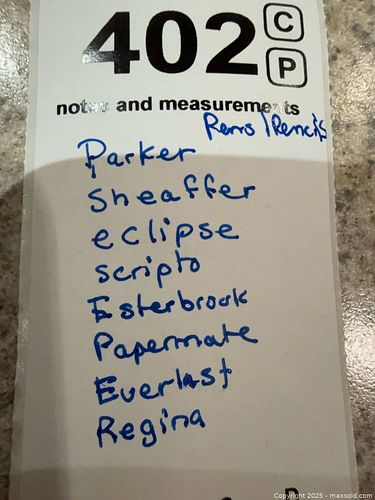 402 C
P
notes and measurements
Pens / Pencils
Parker
Sheaffer
eclipse
scripto
Esterbrook
Papermate
Everlast
Regina
Copyright 2025 - maxsold.com